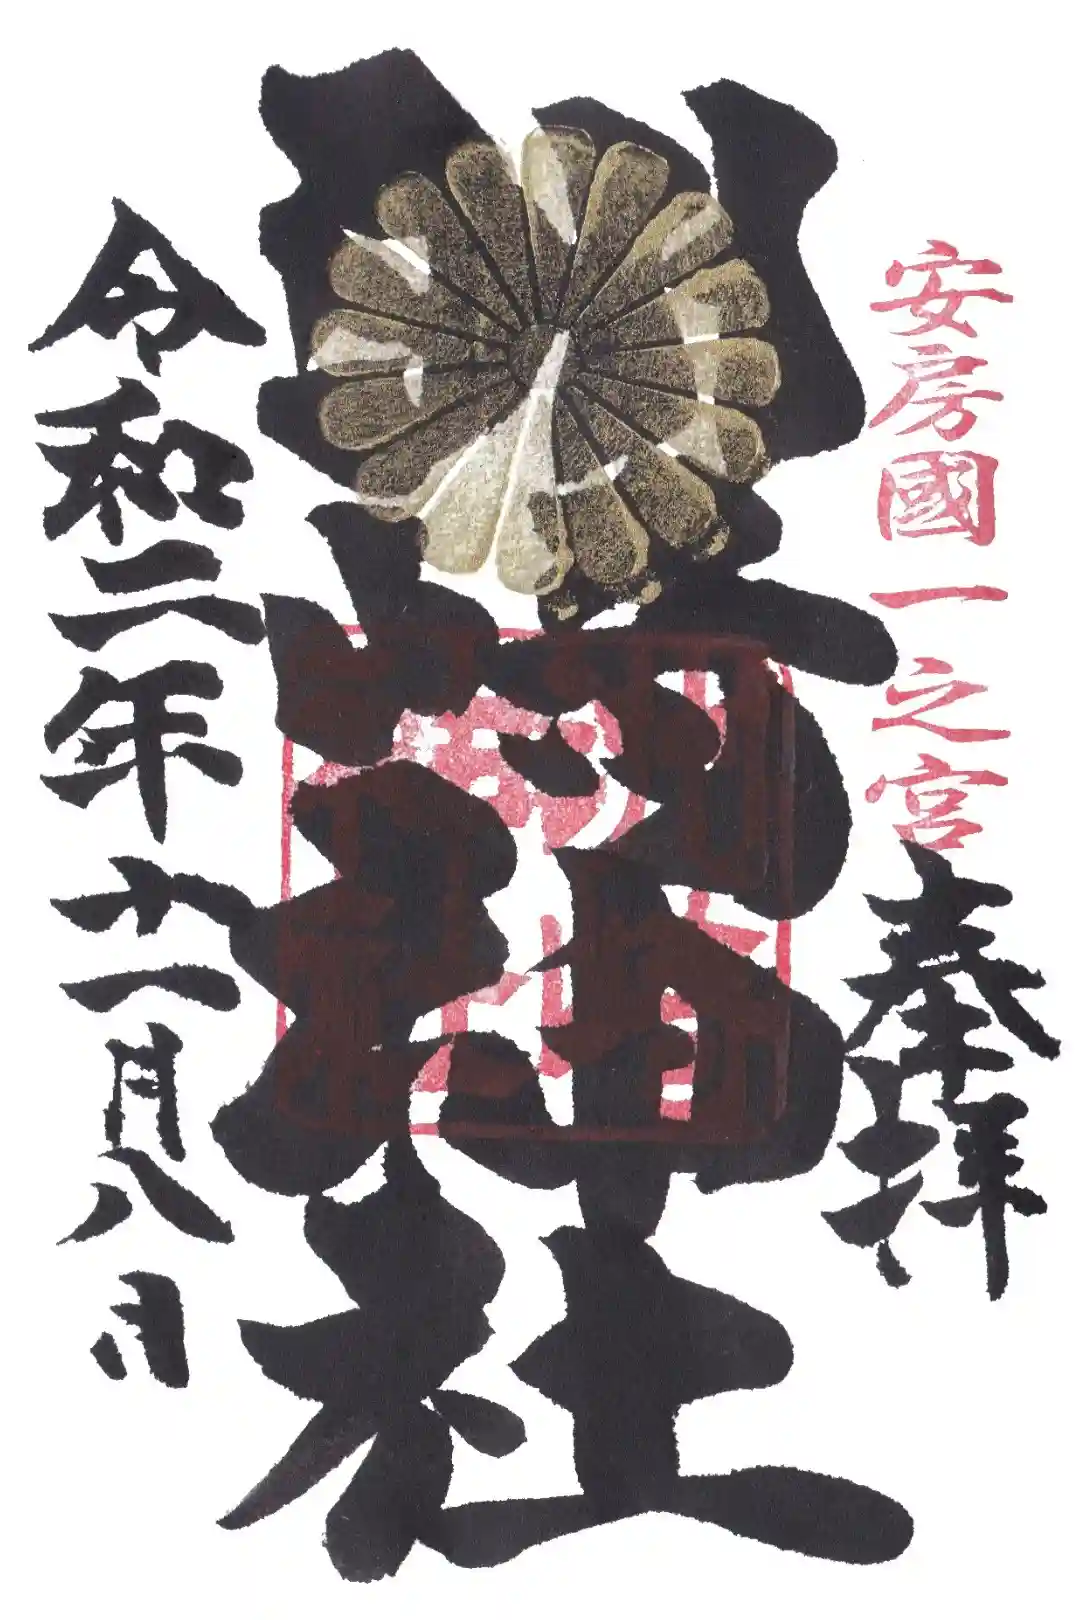 安房國一之宮
奉拝
洲崎神社
令和二年十一月八日